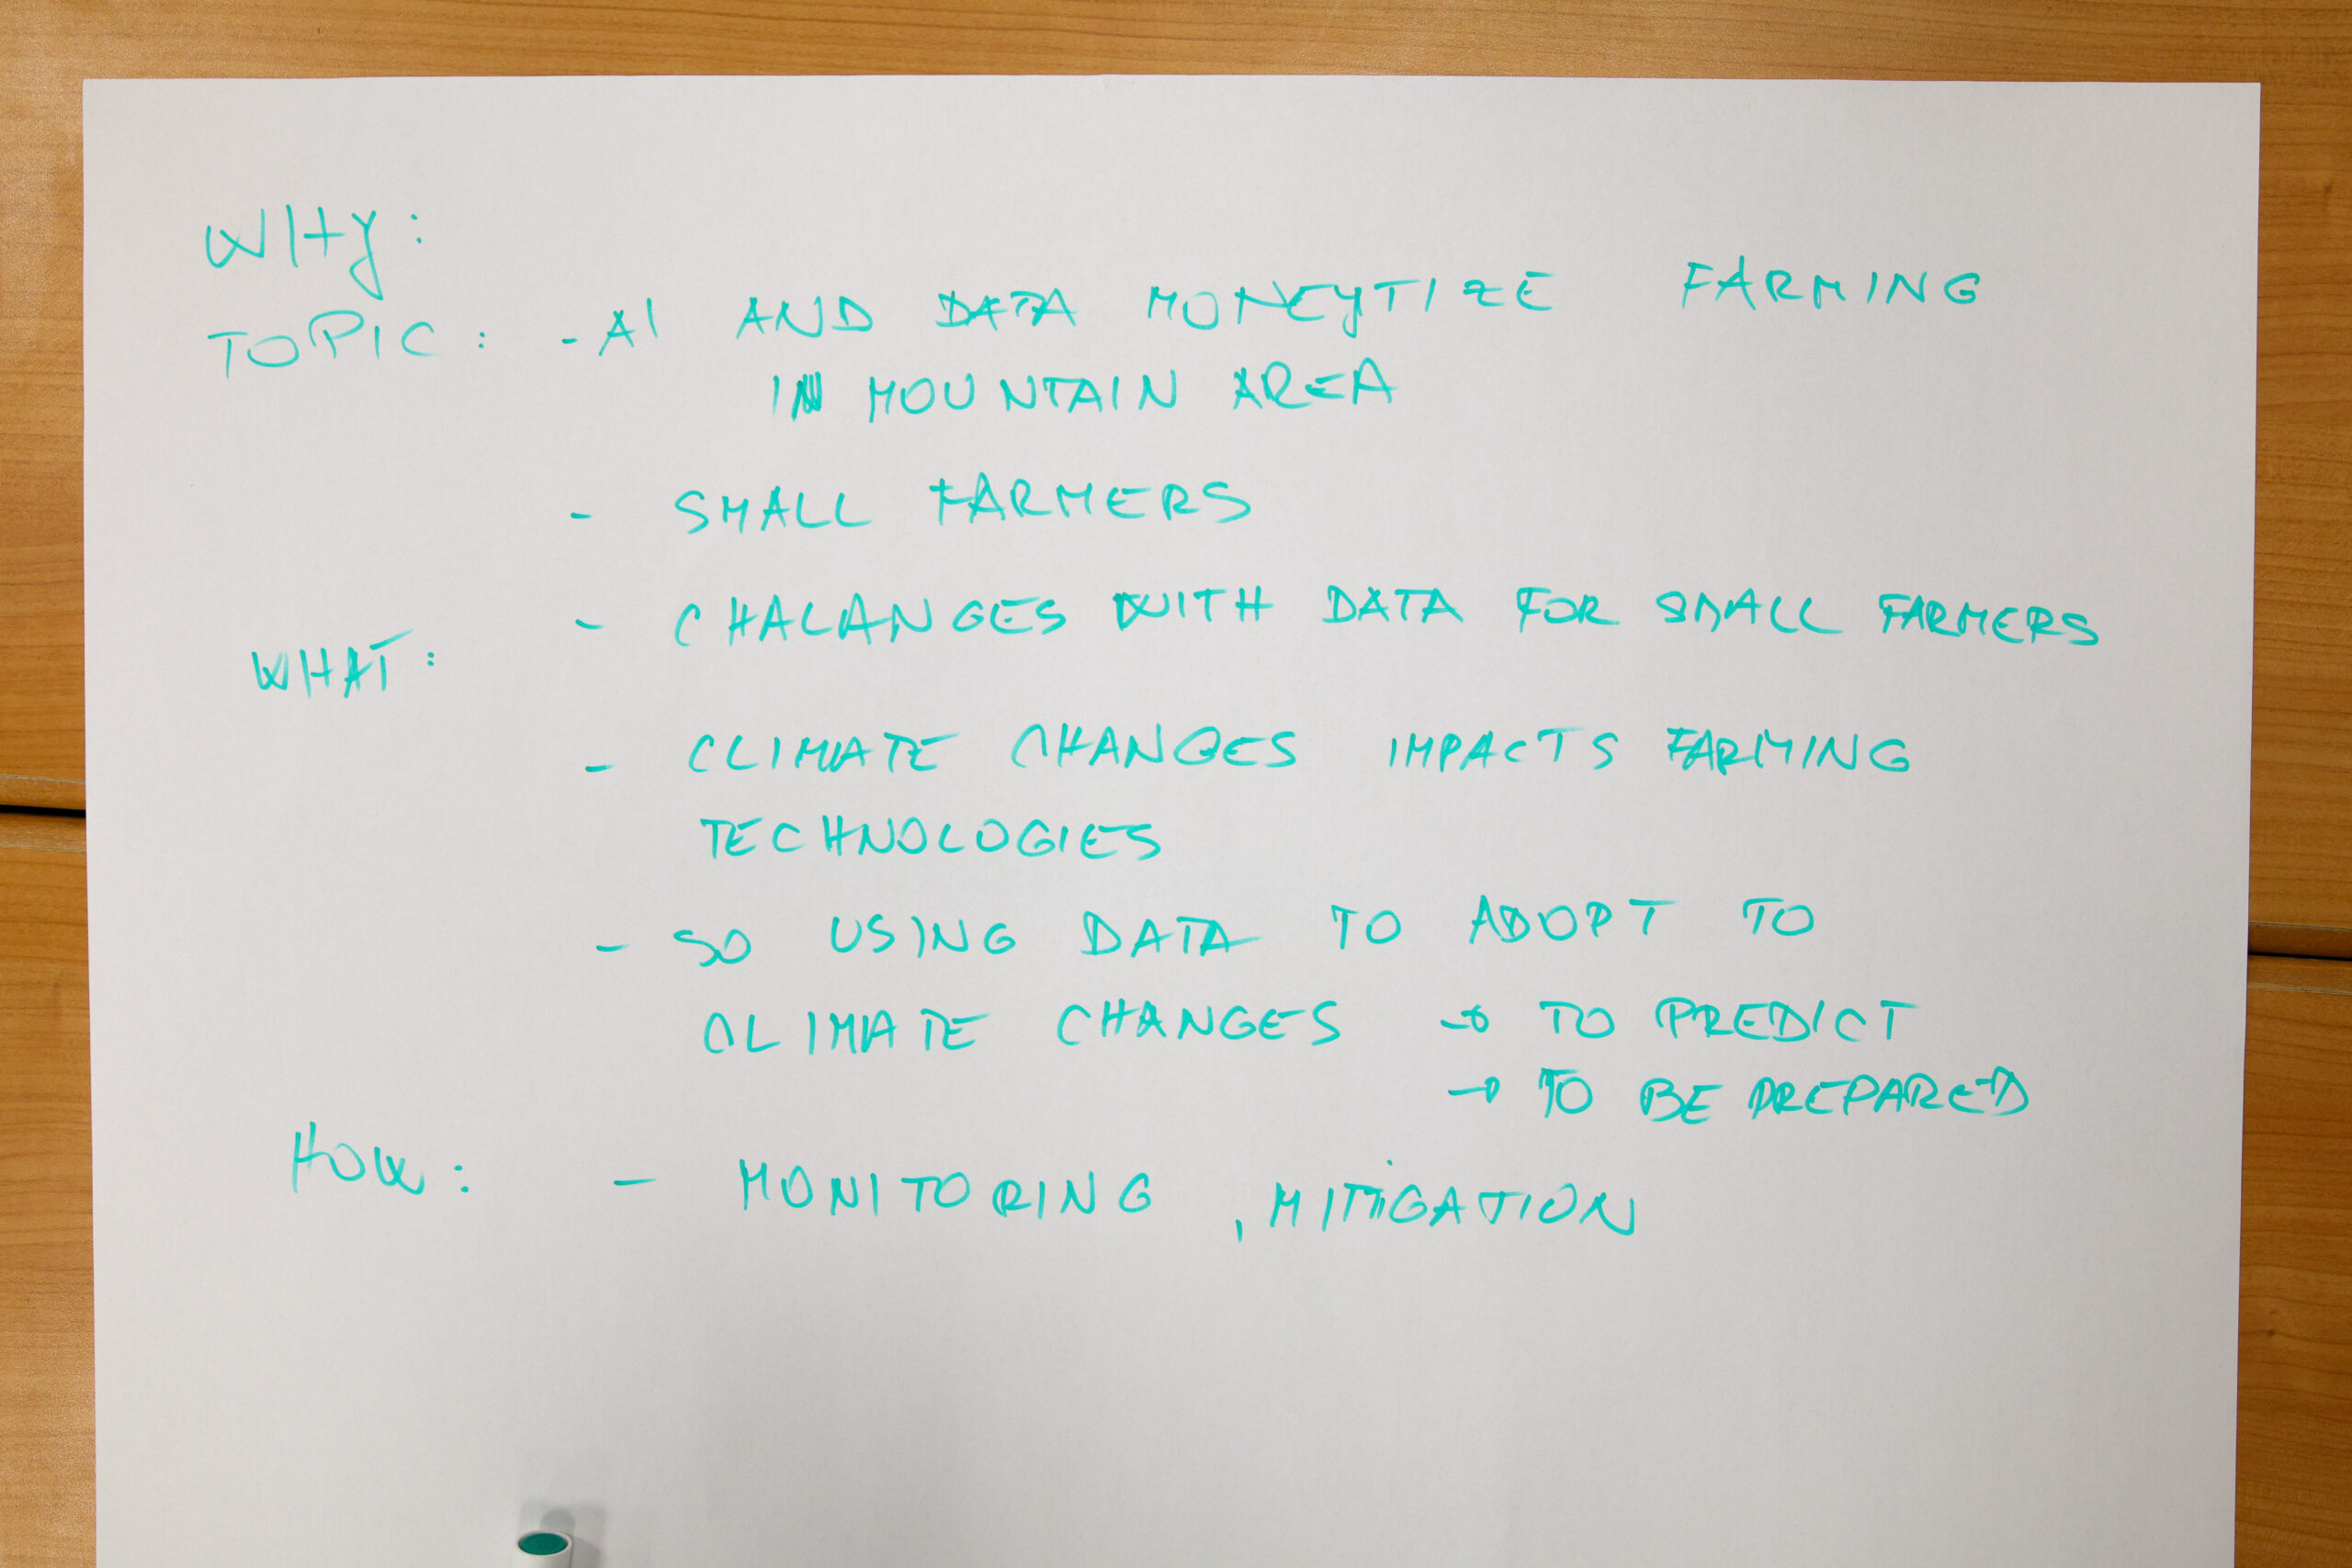 WHY:
TOPIC: - AI AND DATA MONEYTIZE FARMING
IN MOUNTAIN AREA
- SMALL FARMERS
- CHALANGES WITH DATA FOR SMALL FARMERS
WHAT:
- CLIMATE CHANGES IMPACTS FARMING
TECHNOLOGIES
- SO USING DATA TO ADOPT TO
CLIMATE CHANGES → TO PREDICT
→ TO BE PREPARED
HOW: - MONITORING, MITIGATION